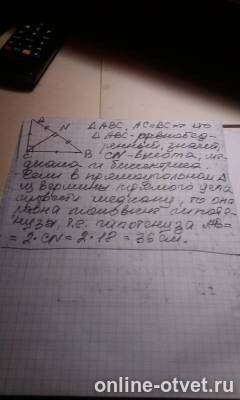 A
N
C
B
Δ ABC, AC=BC => что
Δ ABC - равнобед-
ренный, значит
CN - высота, ме-
диана и биссектриса.
Если в прямоугольном Δ
из вершины прямого угла
провести медиану, то она
равна половине гипоте-
нузы, т.е. гипотенуза AB=
= 2·CN = 2·18 = 36 см.
online-otvet.ru